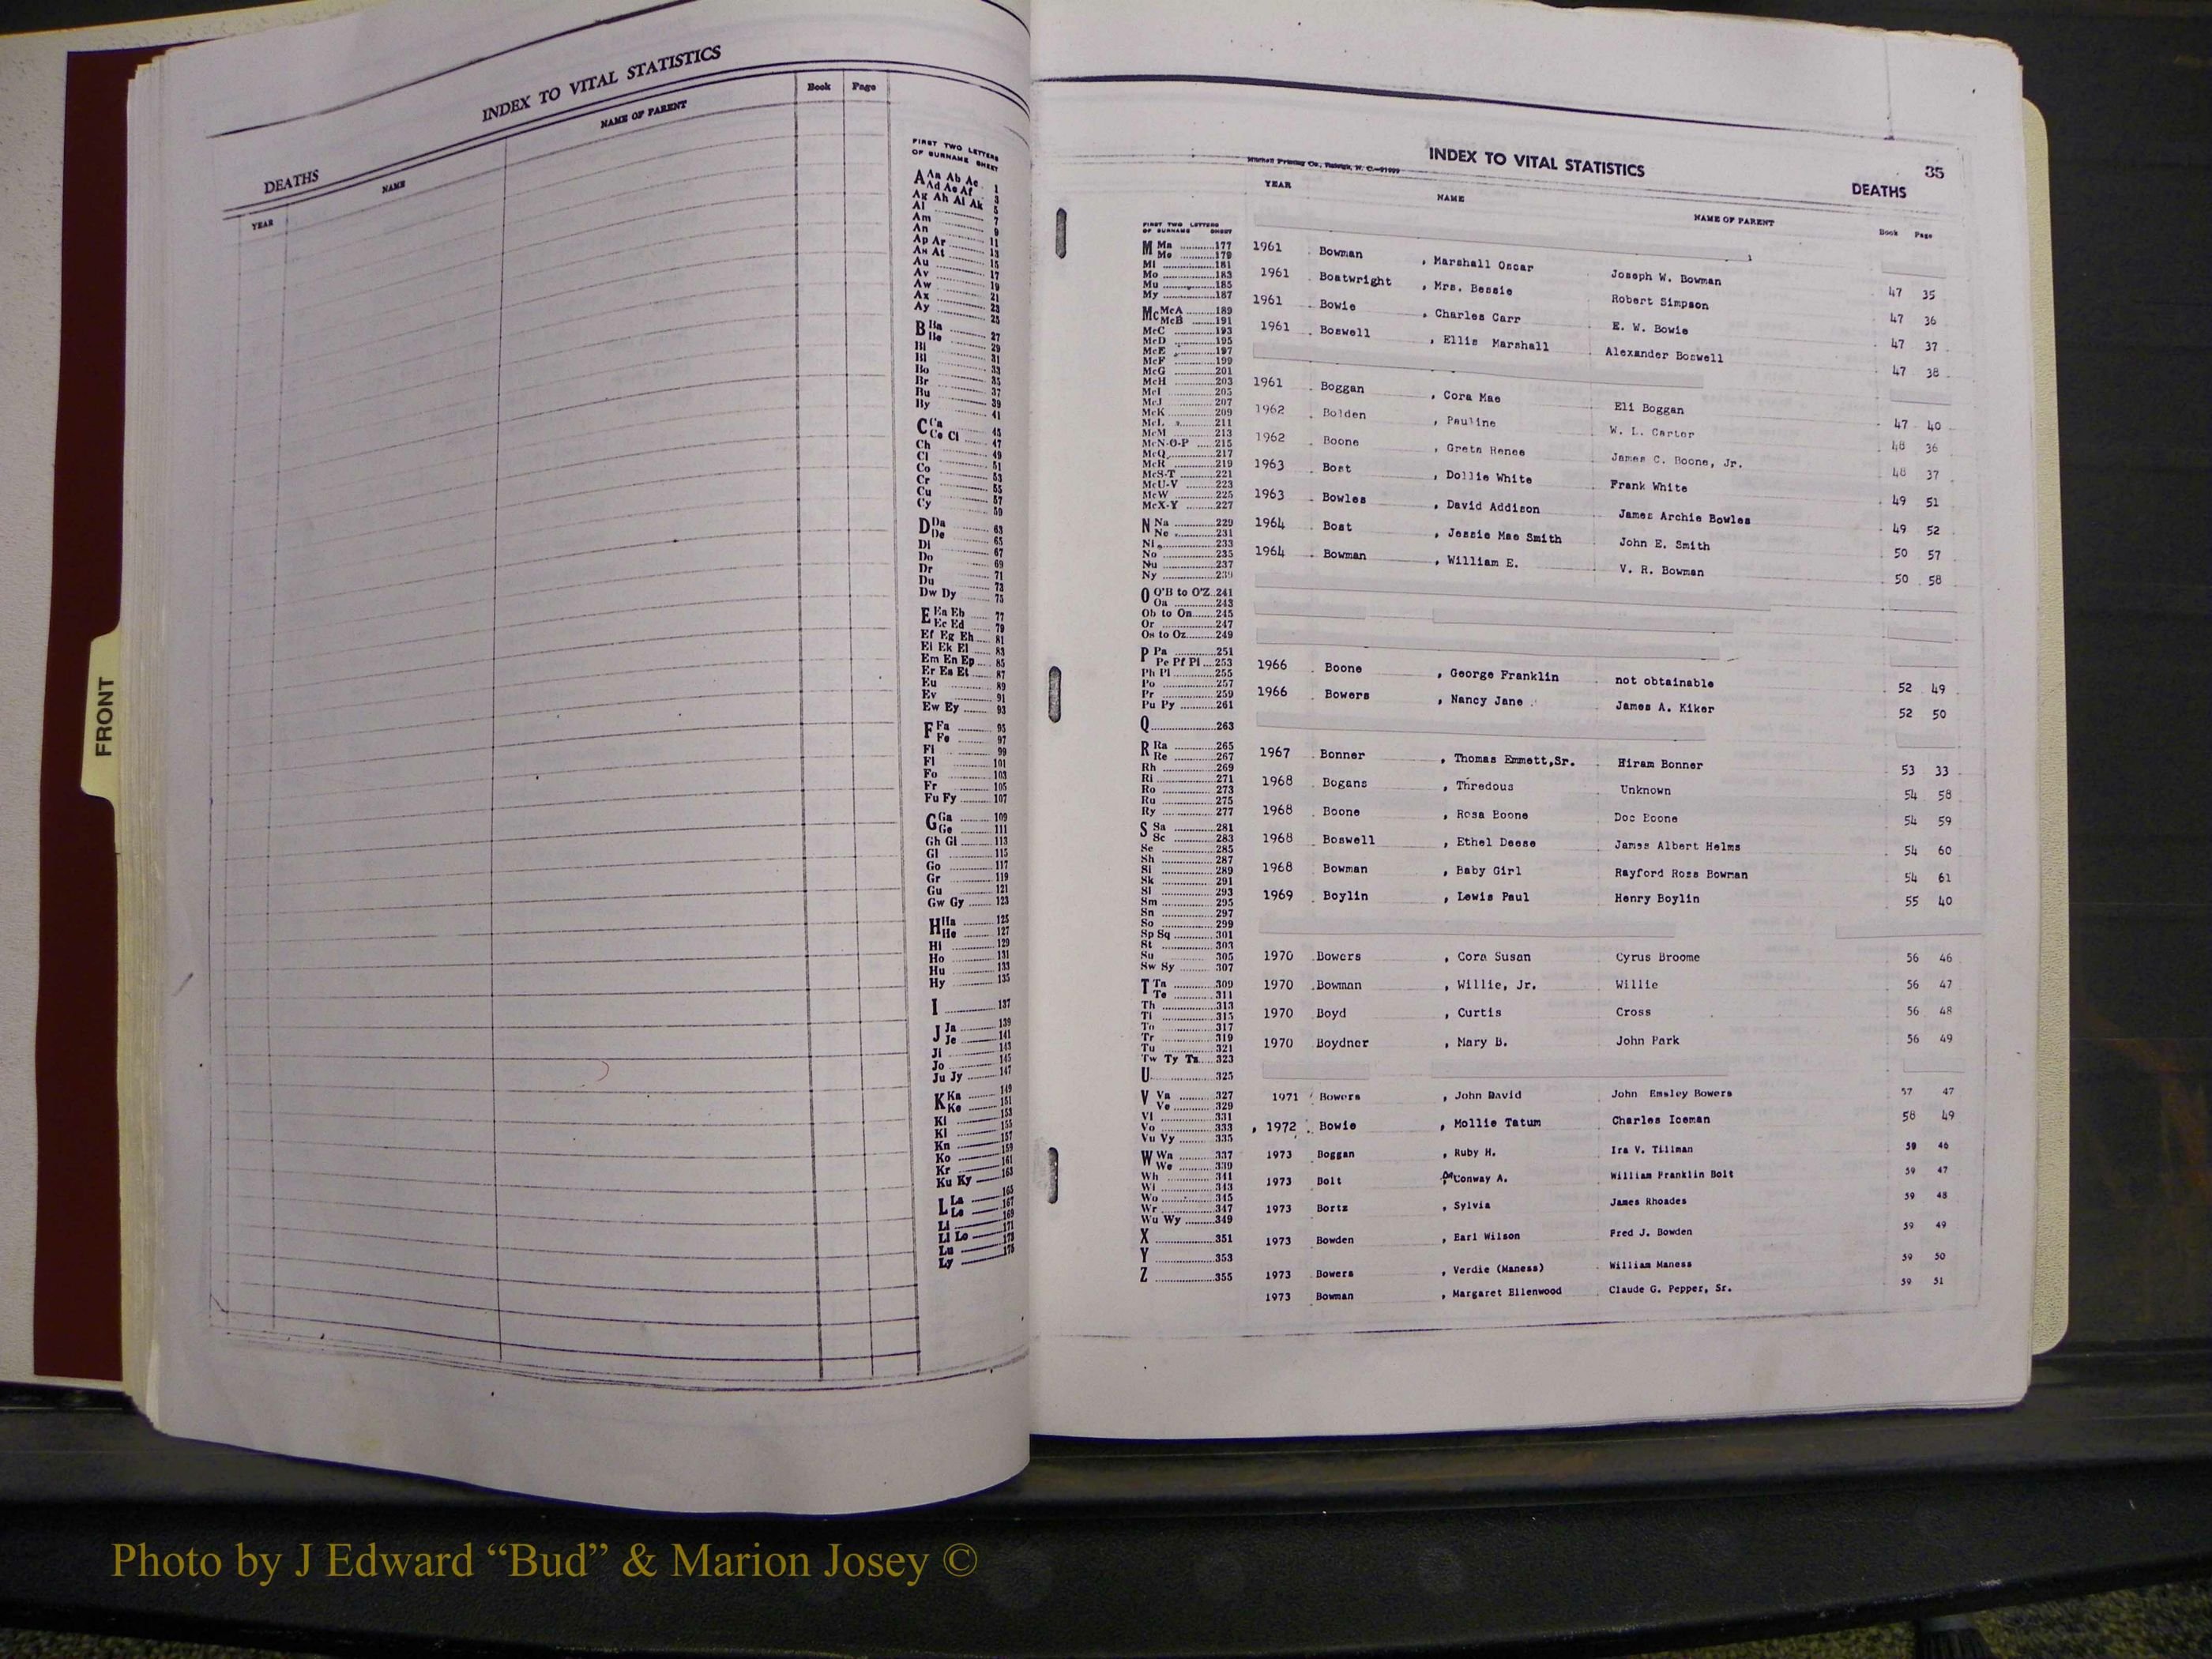 INDEX TO VITAL STATISTICS
DEATHS
YEAR NAME NAME OF PARENT Book Page
FIRST TWO LETTERS
OF SURNAME SHEET
A Aa Ab Ac 1
Ad Ae Af 3
Ag Ah Ai Ak 5
Al 7
Am 9
An 11
Ap Ar 13
As At 15
Au 17
Av 19
Aw 21
Ax 23
Ay 25
B Ba 27
Be 29
Bi 31
Bl 33
Bo 35
Br 37
Bu 39
By 41
C Ca 45
Ce Ci 47
Ch 49
Cl 51
Co 53
Cr 55
Cu 57
Cy 59
D Da 63
De 65
Di 67
Do 69
Dr 71
Du 73
Dw Dy 75
E Ea Eb 77
Ec Ed 79
Ef Eg Eh 81
Ei Ek El 83
Em En Ep 85
Er Es Et 87
Eu 89
Ev 91
Ew Ey 93
F Fa 95
Fe 97
Fi 99
Fl 101
Fo 103
Fr 105
Fu Fy 107
G Ga 109
Ge 111
Gh Gi 113
Gl 115
Go 117
Gr 119
Gu 121
Gw Gy 123
H Ha 125
He 127
Hi 129
Ho 131
Hu 133
Hy 135
I 137
J Ja 139
Je 141
Ji 143
Jo 145
Ju Jy 147
K Ka 149
Ke 151
Ki 153
Kl 155
Kn 157
Ko 159
Kr 161
Ku Ky 163
L La 165
Le 167
Li 169
Ll Lo 171
Lu 173
Ly 175
FRONT
Mitchell Printing Co., Raleigh, N. C.
INDEX TO VITAL STATISTICS
35
DEATHS
YEAR NAME NAME OF PARENT Book Page
FIRST TWO LETTERS
OF SURNAME SHEET
M Ma 177
Me 179
Mi 181
Mo 183
Mu 185
My 187
Mc McA 189
McB 191
McC 193
McD 195
McE 197
McF 199
McG 201
McH 203
McI 205
McJ 207
McK 209
McL 211
McM 213
McN-O-P 215
McQ 217
McR 219
McS-T 221
McU-V 223
McW 225
McX-Y 227
N Na 229
Ne 231
Ni 233
No 235
Nu 237
Ny 239
O O'B to O'Z 241
Oa 243
Ob to On 245
Or 247
Os to Oz 249
P Pa 251
Pe Pf Pi 253
Ph Pl 255
Po 257
Pr 259
Pu Py 261
Q 263
R Ra 265
Re 267
Rh 269
Ri 271
Ro 273
Ru 275
Ry 277
S Sa 281
Sc 283
Se 285
Sh 287
Si 289
Sk 291
Sl 293
Sm 295
Sn 297
So 299
Sp Sq 301
St 303
Su 305
Sw Sy 307
T Ta 309
Te 311
Th 313
Ti 315
To 317
Tr 319
Tu 321
Tw Ty Tz 323
U 325
V Va 327
Ve 329
Vi 331
Vo 333
Vu Vy 335
W Wa 337
We 339
Wh 341
Wi 343
Wo 345
Wr 347
Wu Wy 349
X 351
Y 353
Z 355
1961 Bowman , Marshall Oscar Joseph W. Bowman 47 35
1961 Boatwright , Mrs. Bessie Robert Simpson 47 36
1961 Bowie , Charles Carr E. W. Bowie 47 37
1961 Boswell , Ellis Marshall Alexander Boswell 47 38
1961 Boggan , Cora Mae Eli Boggan 47 40
1962 Bolden , Pauline W. L. Carter 48 36
1962 Boone , Greta Renee James C. Boone, Jr. 48 37
1963 Bost , Dollie White Frank White 49 51
1963 Bowles , David Addison James Archie Bowles 49 52
1964 Bost , Jessie Mae Smith John E. Smith 50 57
1964 Bowman , William E. V. R. Bowman 50 58
1966 Boone , George Franklin not obtainable 52 49
1966 Bowers , Nancy Jane James A. Kiker 52 50
1967 Bonner , Thomas Emmett,Sr. Hiram Bonner 53 33
1968 Bogans , Thredous Unknown 54 58
1968 Boone , Rosa Boone Doc Boone 54 59
1968 Boswell , Ethel Deese James Albert Helms 54 60
1968 Bowman , Baby Girl Rayford Ross Bowman 54 61
1969 Boylin , Lewis Paul Henry Boylin 55 40
1970 Bowers , Cora Susan Cyrus Broome 56 46
1970 Bowman , Willie, Jr. Willie 56 47
1970 Boyd , Curtis Cross 56 48
1970 Boydner , Mary B. John Park 56 49
1971 Bowers , John David John Emsley Bowers 57 47
1972 Bowie , Mollie Tatum Charles Iceman 58 49
1973 Boggan , Ruby H. Ira V. Tillman 59 46
1973 Bolt Conway A. William Franklin Bolt 59 47
1973 Bortz , Sylvia James Rhoades 59 48
1973 Bowden , Earl Wilson Fred J. Bowden 59 49
1973 Bowers , Verdie (Maness) William Maness 59 50
1973 Bowman , Margaret Ellenwood Claude G. Pepper, Sr. 59 51
Photo by J Edward “Bud” & Marion Josey ©